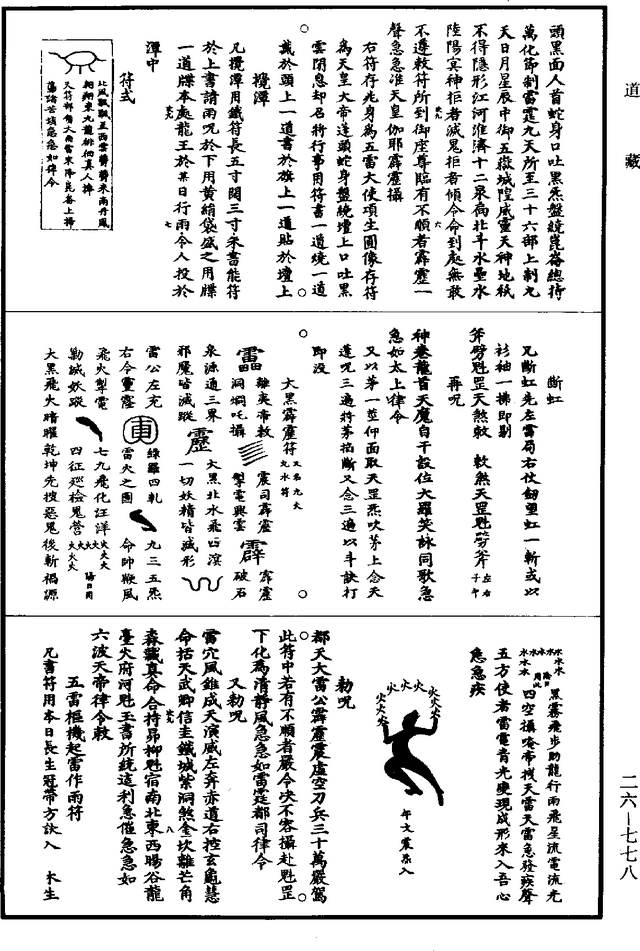 道藏
頭黑面人首蛇身口吐黑炁盤繞崑崙總待
萬化節制雷霆九天所至三十六部上制九
天日月星辰中御五嶽城隍威靈天神地祇
不得隱形江河淮濟十二泉扃北斗水壘水
陸陽冥神拒者滅鬼拒者傾令命到處無敢
不遵敕符所到御座尊臨有不順者霹靂一
聲急急准天皇伽耶霹靂攝
右符存兆身為五雷大使項生圓像存符
為天皇大帝蓬頭蛇身盤繞壇上口吐黑
雲閉息却召將行事用符書一道燒一道
戴於頭上一道書於旗上一道貼於壇上
攪潭
凡攪潭用鐵符長五寸闊三寸朱書能符
於上書請雨呪於下用黃絹袋盛之用牒
一道牒本處龍王於某日行雨令人投於
潭中
符式
斷虹
凡斷虹先左當局右仗劒望虹一斬或以
衫袖一拂即剔
斧劈魁罡天煞敕 敕煞天罡魁劈斧
再呪
神卷龍首天魔自干設位大羅笑詠同歌急
急如太上律令
又以茅一莖仰面取天罡炁吹茅上念天
蓬呪三遍將茅掐斷又念三遍以斗訣打
即沒
大黑霹靂符
離炎帝敕 震司霹靂 霹靂
洞焖吒攝 掣電興雲 破石
泉源通三界 大黑北水飛四溟
邪魔皆滅蹤 一切妖精皆滅形
雷公左充 綠羅四軋 九三五炁
右令靈霆 雷火之國 命帥鞭風
飛火掣電 七九飛化汪洋
勦滅妖蹤 四征廵檢鬼營
大黑飛火暗曜乾坤先捉惡鬼後斬禍源
黑霧飛步助龍行雨飛星流電流光
四空攝唵帝捜天雷天雷急發疾聲
五方使者雷電青光變現成形來入吾心
急急疾
午文震炁入
勑呪
都天大雷公霹靂震虛空刀兵三十萬嚴駕
此符中若有不順者嚴令决不容攝赴魁罡
下化為清靜風急急如雷霆都司律令
又勑呪
雷穴風錐成天演威左弃赤道右控玄龜慧
命括天武卿信圭鐵城紫洞煞金坎離芒角
森羅真命合持昴柳魁宿南北東西暘谷龍
臺火府河魁玉書所統這利急催急急如
六波天帝律令敕
五雷樞機起雷作雨符
凡書符用本日長生冠帶方訣入 木生
二六—七七八